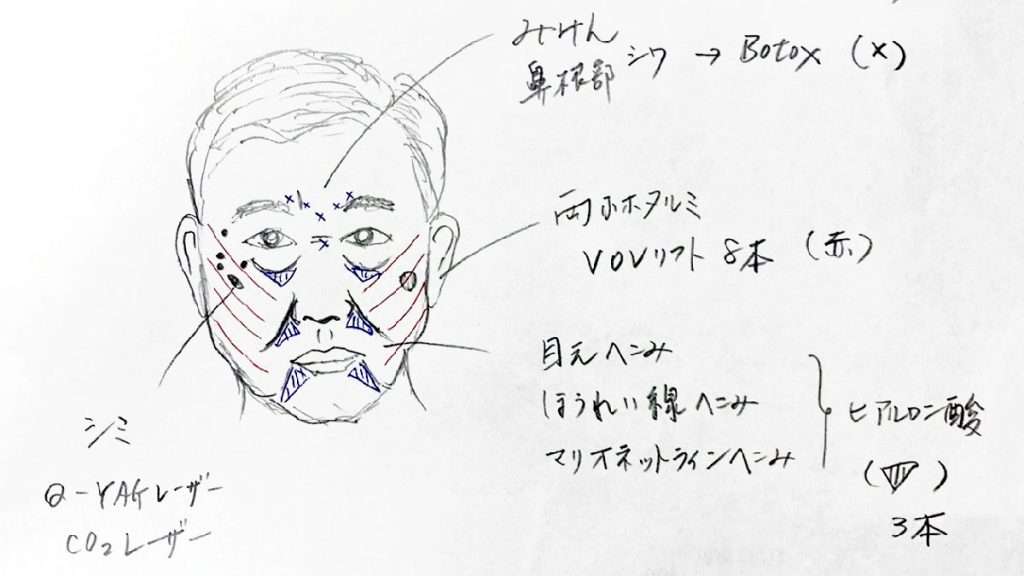 みけん
鼻根部 シワ → Botox (×)
両ホホタルミ
VOVリフト 8本 (赤)
目元へこみ
ほうれい線へこみ
マリオネットラインへこみ
ヒアルロン酸
( )
3本
シミ
Q-YAGレーザー
CO2レーザー